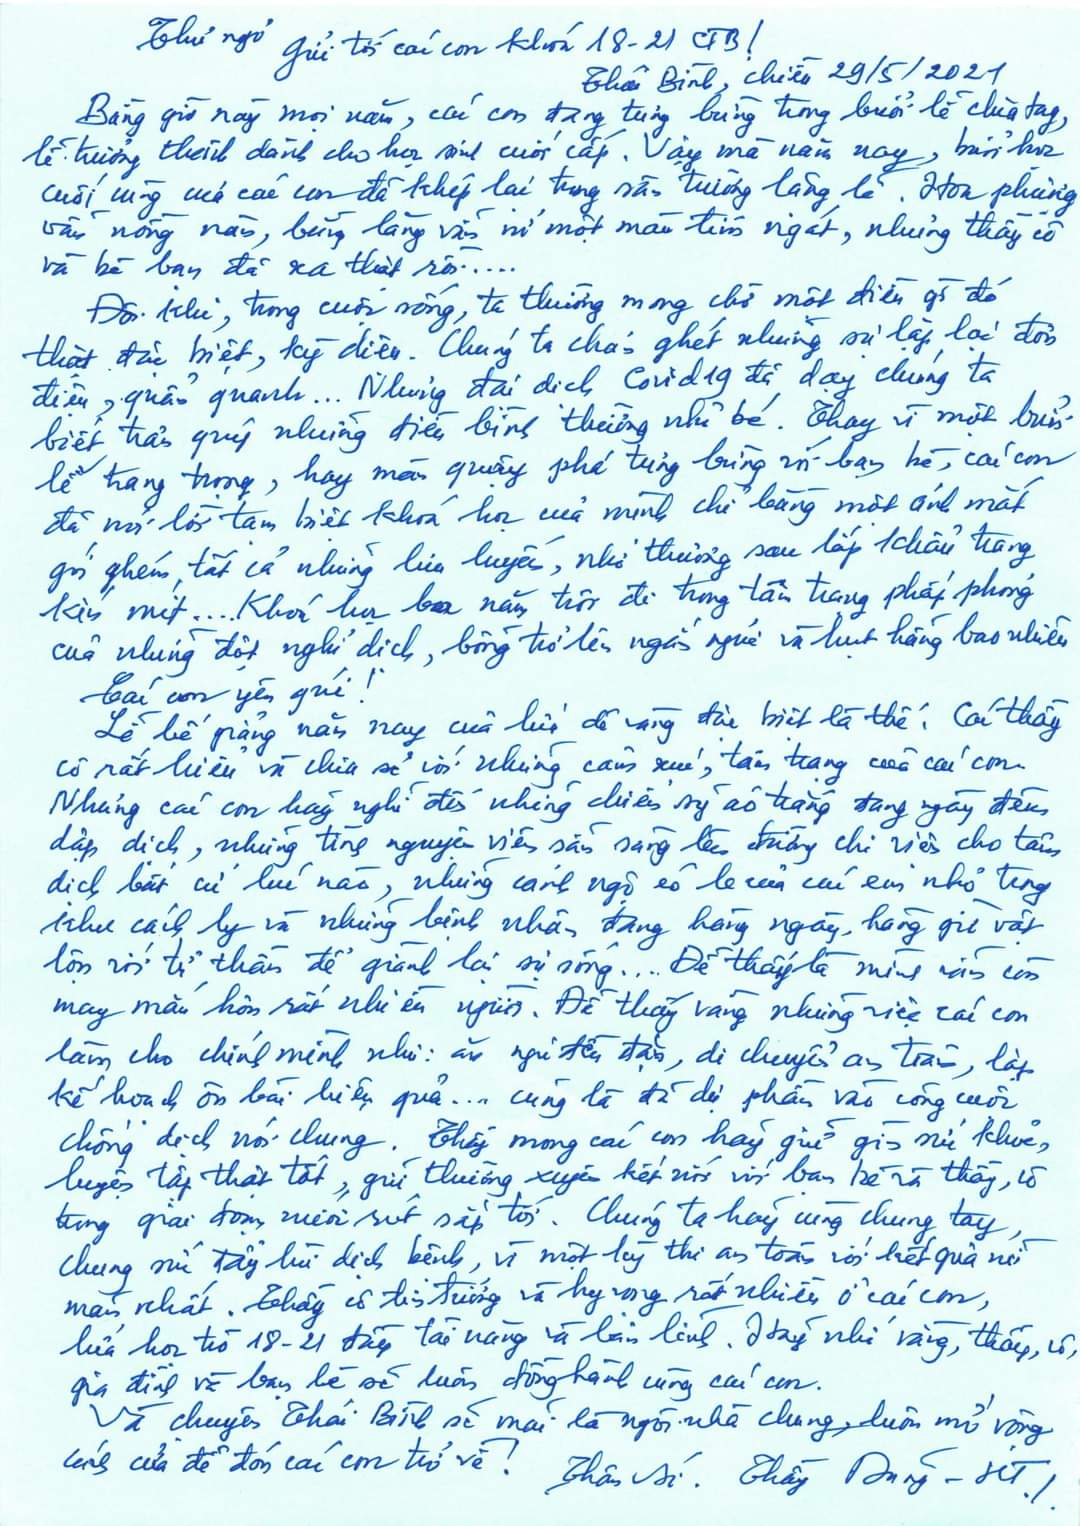 Thư ngỏ
Gửi tới các con khoá 18-21 CTB!
Thái Bình, chiều 29/5/2021
Bằng giờ này mọi năm, các con đang tưng bừng trong buổi lễ chia tay,
lễ trưởng thành dành cho học sinh cuối cấp. Vậy mà năm nay, buổi học
cuối cùng của các con đã khép lại trong sân trường lặng lẽ. Hoa phượng
vẫn nồng nàn, bằng lăng vẫn nở một màu tím ngát, nhưng thầy cô
và bè bạn đã xa thật rồi....
Đôi khi, trong cuộc sống, ta thường mong chờ một điều gì đó
thật đặc biệt, kỳ diệu. Chúng ta chán ghét những sự lặp lại đơn
điệu, quẩn quanh... Nhưng đại dịch Covid19 đã dạy chúng ta
biết trân quý những điều bình thường nhỏ bé. Thay vì một buổi
lễ trang trọng, hay màn quậy phá tưng bừng với bạn bè, các con
đã nói lời tạm biệt khoá học của mình chỉ bằng một ánh mắt
gói ghém tất cả những lưu luyến, nhớ thương sau lớp khẩu trang
kín mít.... Khoá học ba năm trôi đi trong tâm trạng phấp phỏng
của những đợt nghỉ dịch, bỗng trở lên ngắn ngủi và hụt hẫng bao nhiêu
Các con yêu quí!
Lễ bế giảng năm nay của lứa dê vàng đặc biệt là thế. Các thầy
cô rất hiểu và chia sẻ với những cảm xúc, tâm trạng của các con.
Nhưng các con hãy nghĩ đến những chiến sỹ áo trắng đang ngày đêm
dập dịch, những tình nguyện viên sẵn sàng lên đường chi viện cho tâm
dịch bất cứ lúc nào, những cảnh ngộ éo le của các em nhỏ trong
khu cách ly và những bệnh nhân đang hàng ngày, hàng giờ vật
lộn với tử thần để giành lại sự sống.... Để thấy là mình vẫn còn
may mắn hơn rất nhiều người. Để thấy rằng những việc các con
làm cho chính mình như: ăn ngủ đều đặn, di chuyển an toàn, lập
kế hoạch ôn bài hiệu quả... cũng là đã dự phần vào công cuộc
chống dịch nói chung. Thầy mong các con hãy giữ gìn sức khoẻ,
luyện tập thật tốt, giữ thường xuyên kết nối với bạn bè và thầy, cô
trong giai đoạn nước rút sắp tới. Chúng ta hãy cùng chung tay,
chung sức đẩy lùi dịch bệnh, vì một kỳ thi an toàn với kết quả mĩ
mãn nhất. Thầy cô tin tưởng và hy vọng rất nhiều ở các con,
lứa học trò 18-21 đầy tài năng và bản lĩnh. Hãy nhớ rằng, thầy, cô,
gia đình và bạn bè sẽ luôn đồng hành cùng các con.
Và chuyên Thái Bình sẽ mãi là ngôi nhà chung, luôn mở rộng
cánh cửa để đón các con trở về!
Thân ái. Thầy Dung - HT!